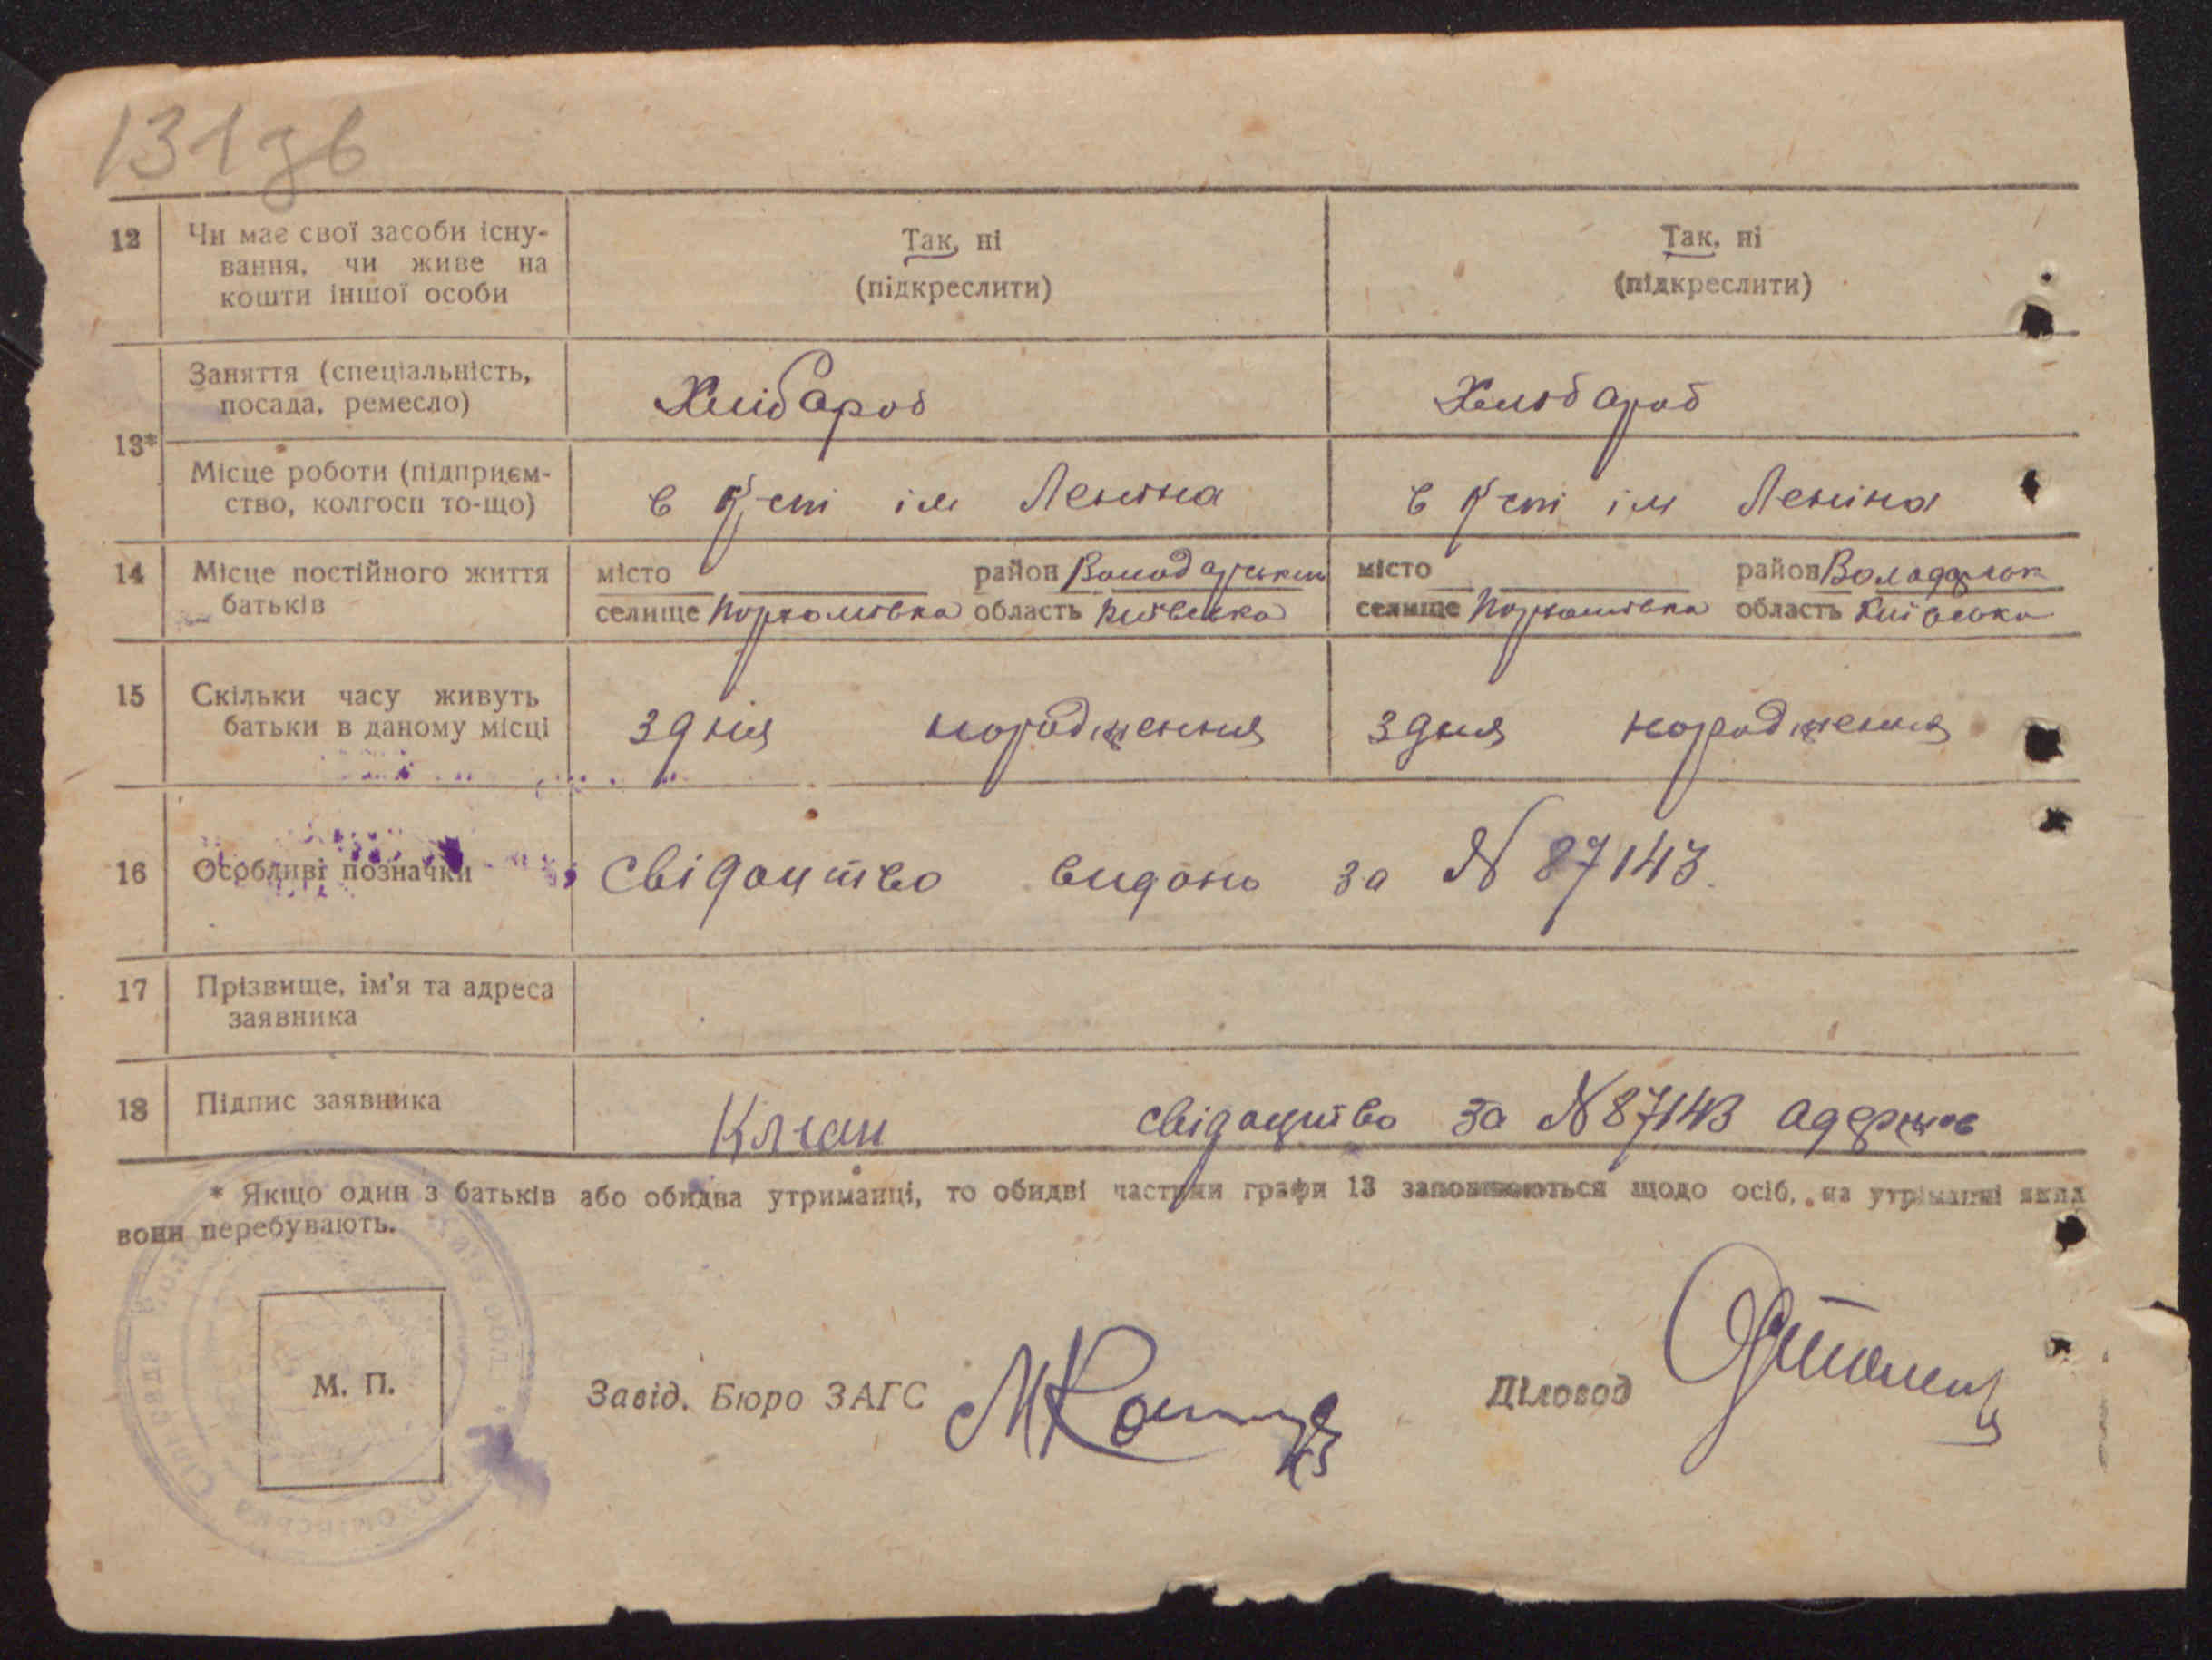 131 зв
12 Чи має свої засоби існу-
вання, чи живе на
кошти іншої особи
Так, ні
(підкреслити)
Так, ні
(підкреслити)
13*
Заняття (спеціальність,
посада, ремесло)
Хлібароб
Хлібароб
Місце роботи (підприєм-
ство, колгосп то-що)
в к-спі ім Леніна
в к-спі ім Леніна
14 Місце постійного життя
батьків
місто район Володарський
селище Пархомівка область Київська
місто район Володарськ
селище Пархомівка область Київська
15 Скільки часу живуть
батьки в даному місці
З дня народження
З дня народження
16 Особливі позначки
Свідоцтво видано за № 87143.
17 Прізвище, ім'я та адреса
заявника
18 Підпис заявника
свідоцтво за № 87143
* Якщо один з батьків або обидва утриманці, то обидві частини графи 13 заповнюються щодо осіб, на утриманні яких
вони перебувають.
М. П.
Завід. Бюро ЗАГС
Діловод